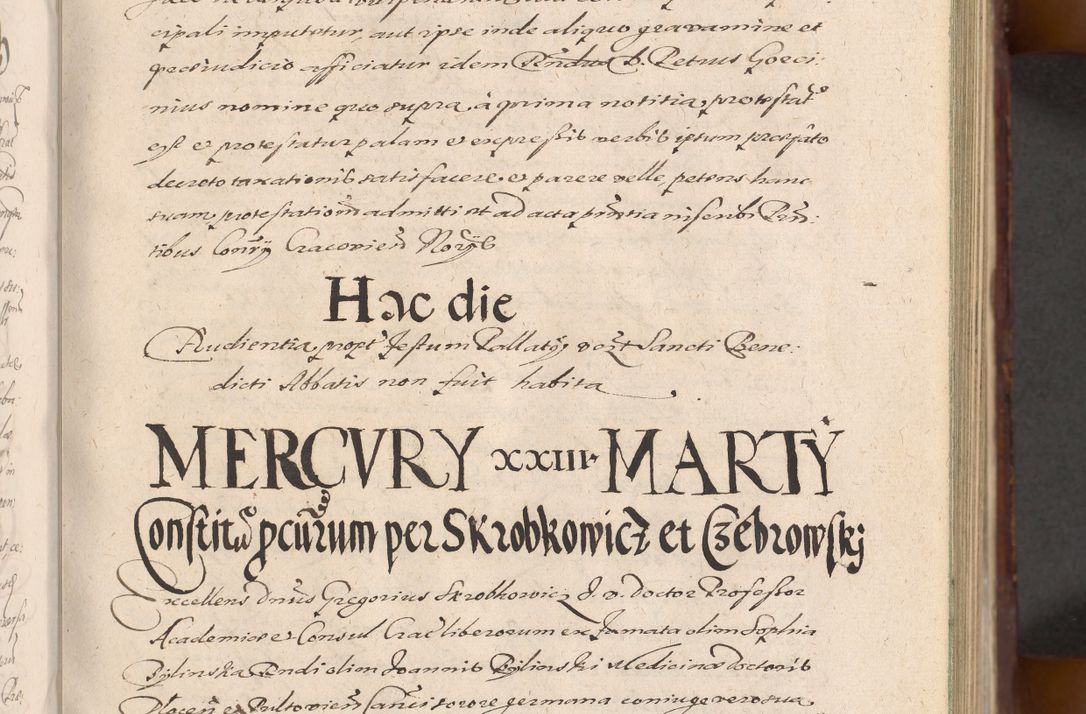 cipali imputetur, aut ipse inde aliquo gravamine et
præiudicio afficiatur idem D. Petrus Goreci:
nius nomine quo supra, à prima notitia, protestat9
est et protestatur palam et expressis verbis ipsum præfato
decreto taxationis satisfacere et parere velle petens hanc
suam protestationē admitti et ad acta pn̄tia inscribi Pn̄:
tibus Cracovień Noryś
Hac die
Audientia propt Festum Pallatij vet Sancti Bene:
dicti Abbatis non fuit habita
MERCVRY XXIII MARTY
Constitū pcūrum per Skrobkowicz et Czebrowskj
Excellens Dnūs Gregorius Skrobkowicz J. V. Doctor Professor
Academiæ et Consul Crac liberorum ex famata olim Sophia
Bylinska Rndi olim Joannis Bylinski Medicinæ Doctoris
Płoceń et Pultovień Canci sorore germana coniuge vero sua